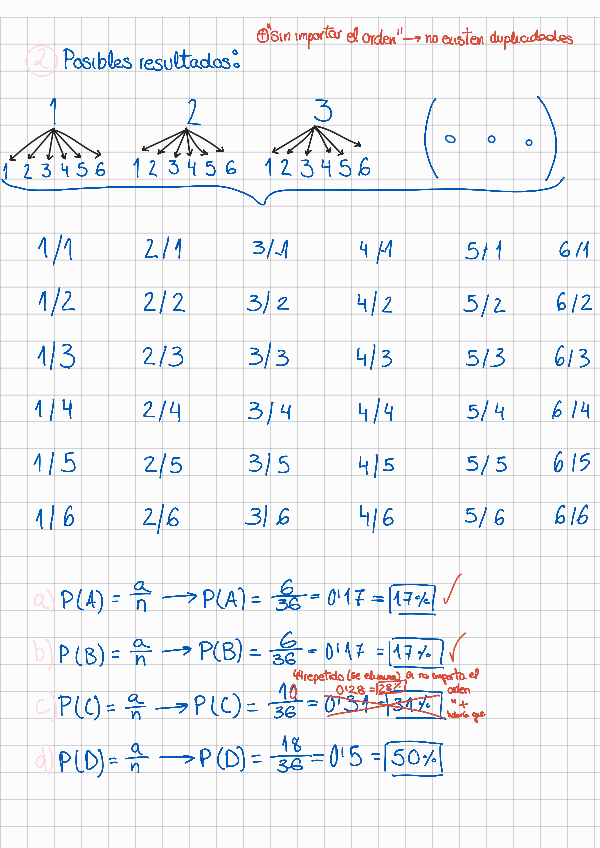 ⊕ "sin importar el orden" → no existen duplicidades
2 Posibles resultados:
1 2 3
1 2 3 4 5 6 1 2 3 4 5 6 1 2 3 4 5 6
1/1 2/1 3/1 4/1 5/1 6/1
1/2 2/2 3/2 4/2 5/2 6/2
1/3 2/3 3/3 4/3 5/3 6/3
1/4 2/4 3/4 4/4 5/4 6/4
1/5 2/5 3/5 4/5 5/5 6/5
1/6 2/6 3/6 4/6 5/6 6/6
a) P(A) = a/n → P(A) = 6/36 = 0'17 = 17% ✓
b) P(B) = a/n → P(B) = 6/36 = 0'17 = 17% ✓
4/4 repetido (se elimina) si no importa el
orden
0'28 = 28%
c) P(C) = a/n → P(C) = 10/36 = 0'31 = 31%
" +
habría que
d) P(D) = a/n → P(D) = 18/36 = 0'5 = 50%